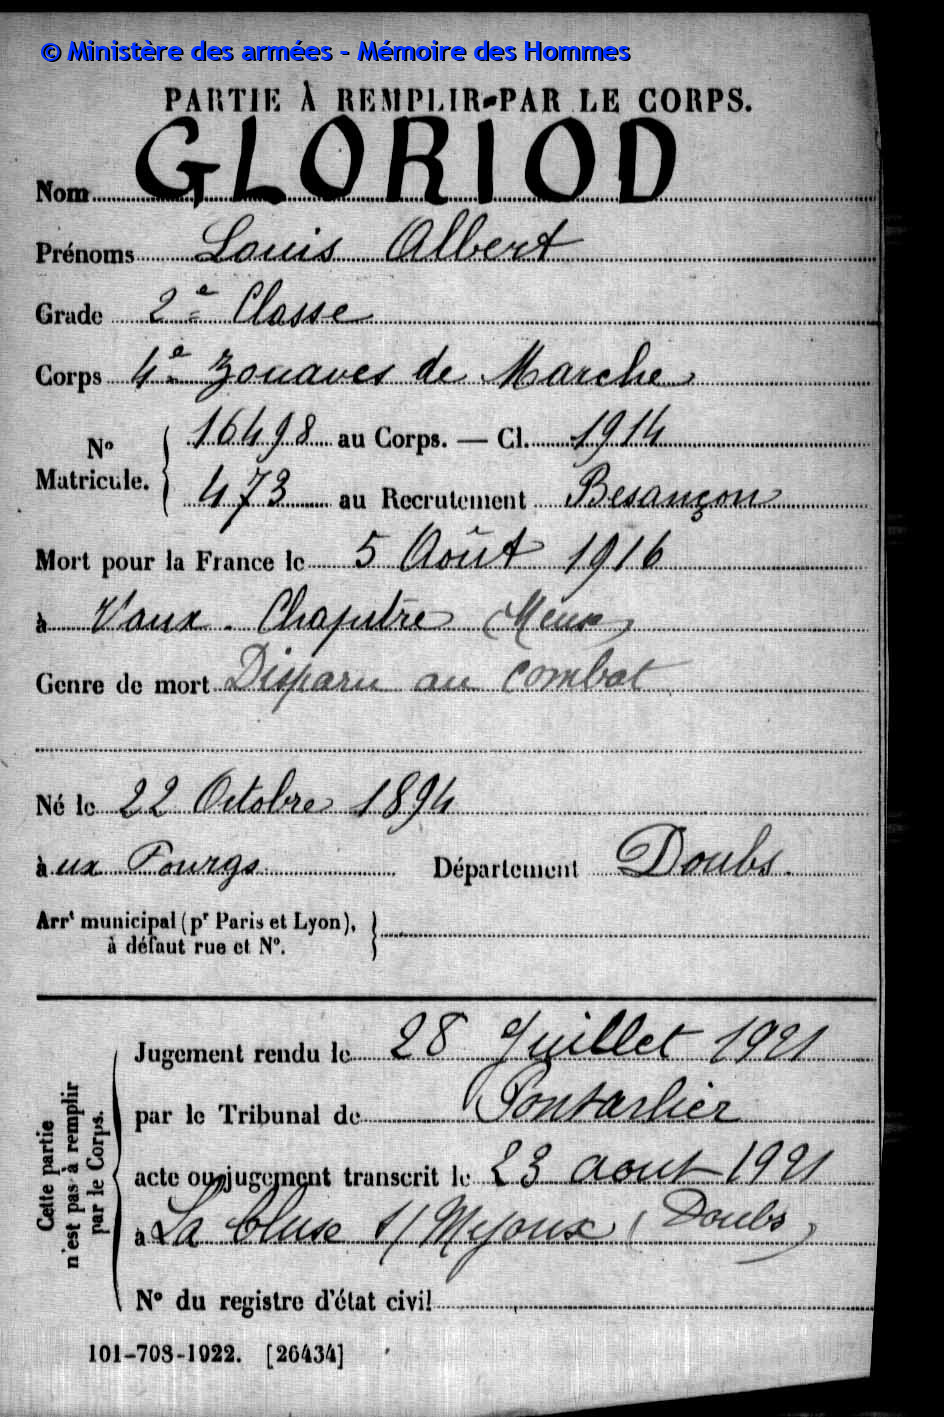 © Ministère des armées - Mémoire des Hommes
PARTIE À REMPLIR PAR LE CORPS.
Nom GLORIOD
Prénoms Louis Albert
Grade 2e Classe
Corps 4e Zouaves de Marche
No Matricule. { 16498 au Corps. — Cl. 1914
473 au Recrutement Besançon
Mort pour la France le 5 Août 1916
à Vaux - Chapitre (Meuse)
Genre de mort Disparu au combat
Né le 22 Octobre 1894
à ux Fourgs Département Doubs.
Arrt municipal (pr Paris et Lyon),
à défaut rue et No.
Cette partie n'est pas à remplir par le Corps.
Jugement rendu le 28 Juillet 1921
par le Tribunal de Pontarlier
acte ou jugement transcrit le 23 aout 1921
à La Cluse s/ Mijoux (Doubs)
No du registre d'état civil
101-708-1922. [26434]